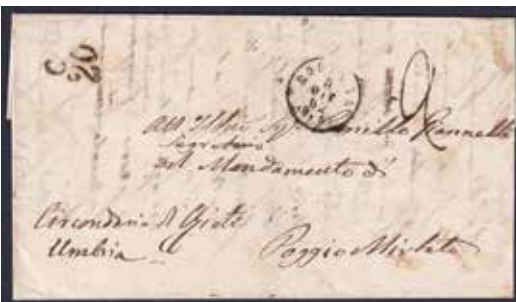 C
20
2
All' Illmo Sigr Camillo
Segretario
del Mandamento di
Circondario di Rieti
Umbria
Poggio Mirteto